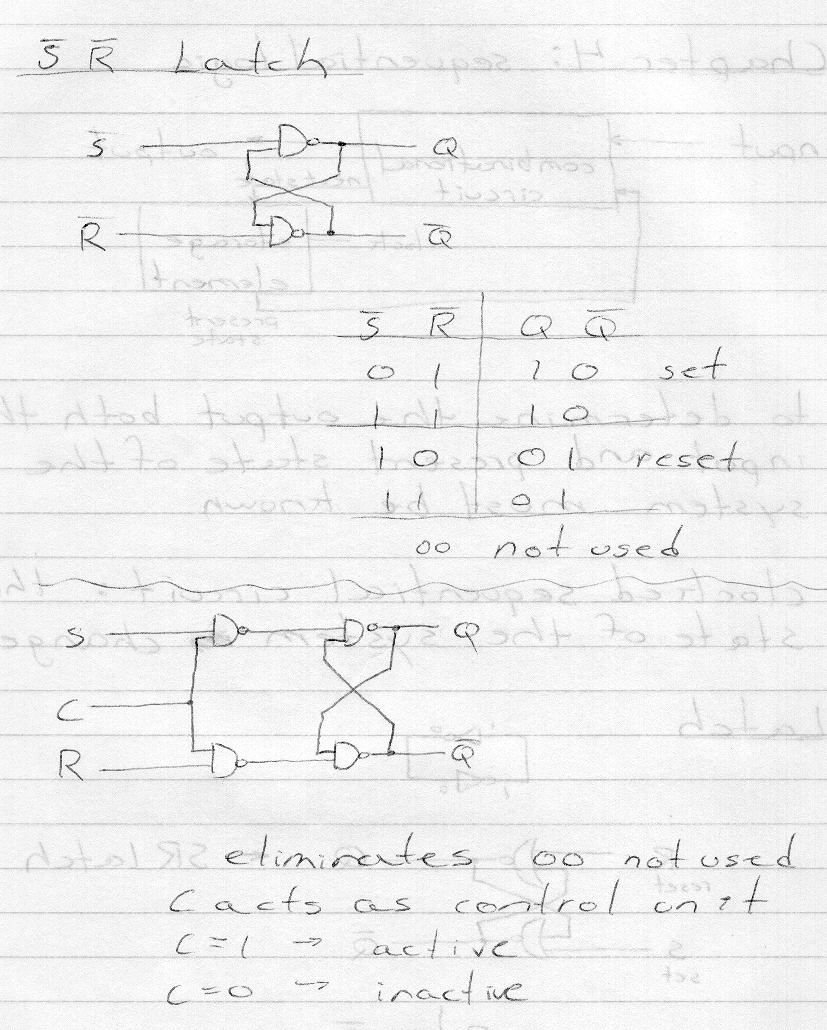 S̅ R̅ Latch
S̅ Q
R̅ Q̅
S̅ R̅ Q Q̅
0 1 1 0 set
1 1 1 0
1 0 0 1 reset
1 1 0 1
00 not used
S Q
C
R Q̅
eliminates 00 not used
C acts as control unit
C=1 → active
C=0 → inactive